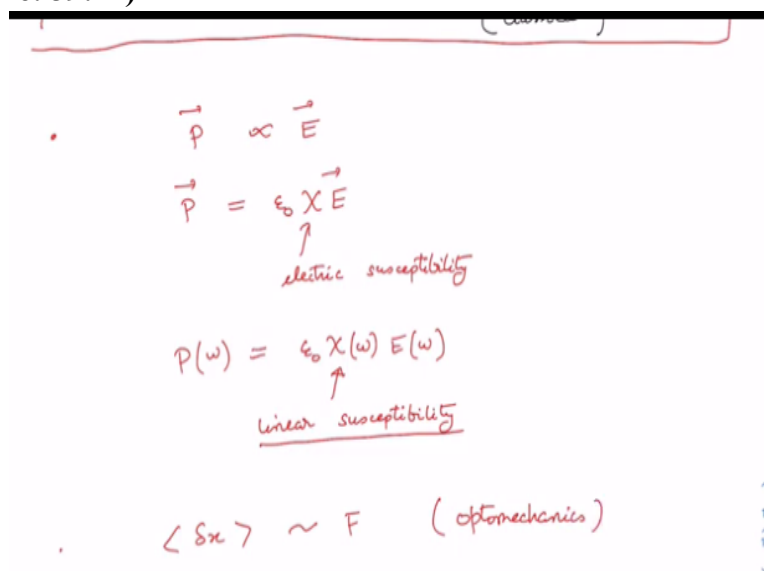 P⃗ ∝ E⃗
P⃗ = ε₀ χ E⃗
↑
electric susceptibility
P(ω) = ε₀ χ(ω) E(ω)
↑
linear susceptibility
⟨δx⟩ ~ F (optomechanics)